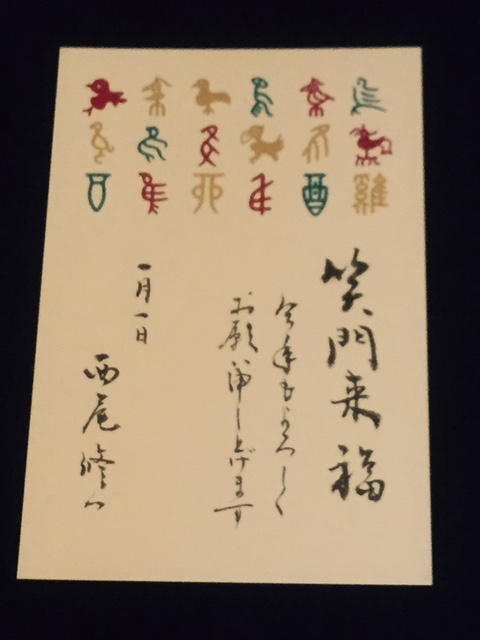 酉
雞
笑門来福
今年もよろしく
お願い申し上げます
一月一日
西尾修一